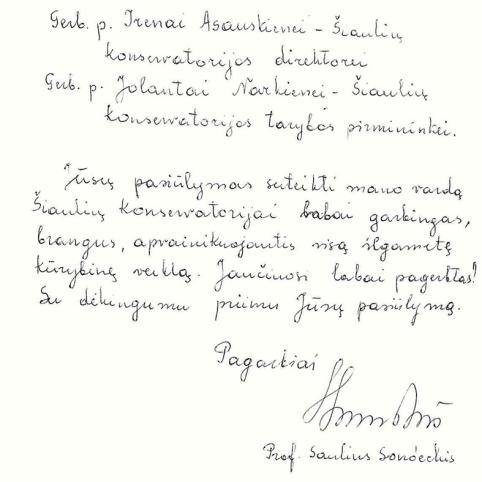 Gerb. p. Irenai Asauskienei - Šiaulių
konservatorijos direktorei
Gerb. p. Jolantai Narkienei - Šiaulių
konservatorijos tarybos pirmininkei.
Jūsų pasiūlymas suteikti mano vardą
Šiaulių konservatorijai labai garbingas,
brangus, apvainikuojantis visą ilgametę
kūrybinę veiklą. Jaučiuosi labai pagerbtas!
Su dėkingumu priimu Jūsų pasiūlymą.
Pagarbiai
Prof. Saulius Sondeckis